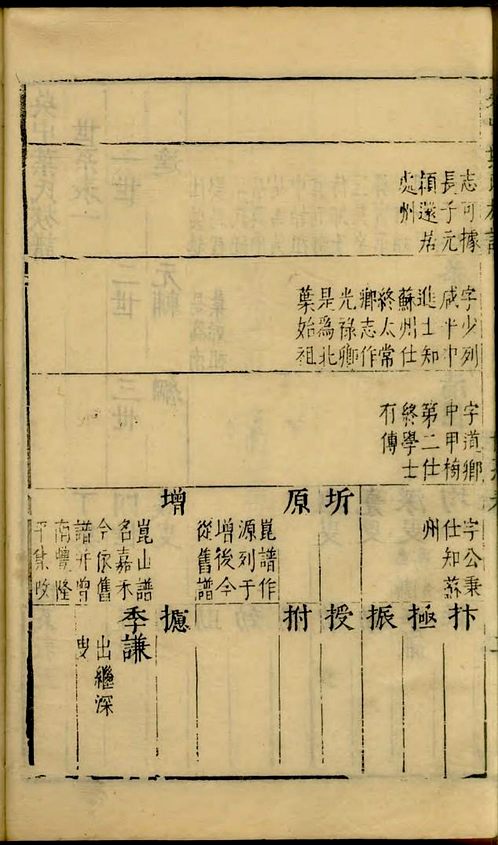 志可據
長子元
穎遂居
處州
字少列
咸平中
進士知
蘇州仕
終太常
卿志作
光祿卿
是為北
葉始祖
字道卿
中甲榜
第二仕
終學士
有傳
字公秉
仕知蘇
州
圻
原
崑譜作
源列于
增後今
從舊譜
增
崑山譜
名嘉禾
今依舊
譜并增
南豐隆
平集改
抃
極
振
授
拊
摅
季謙
出繼深
叟